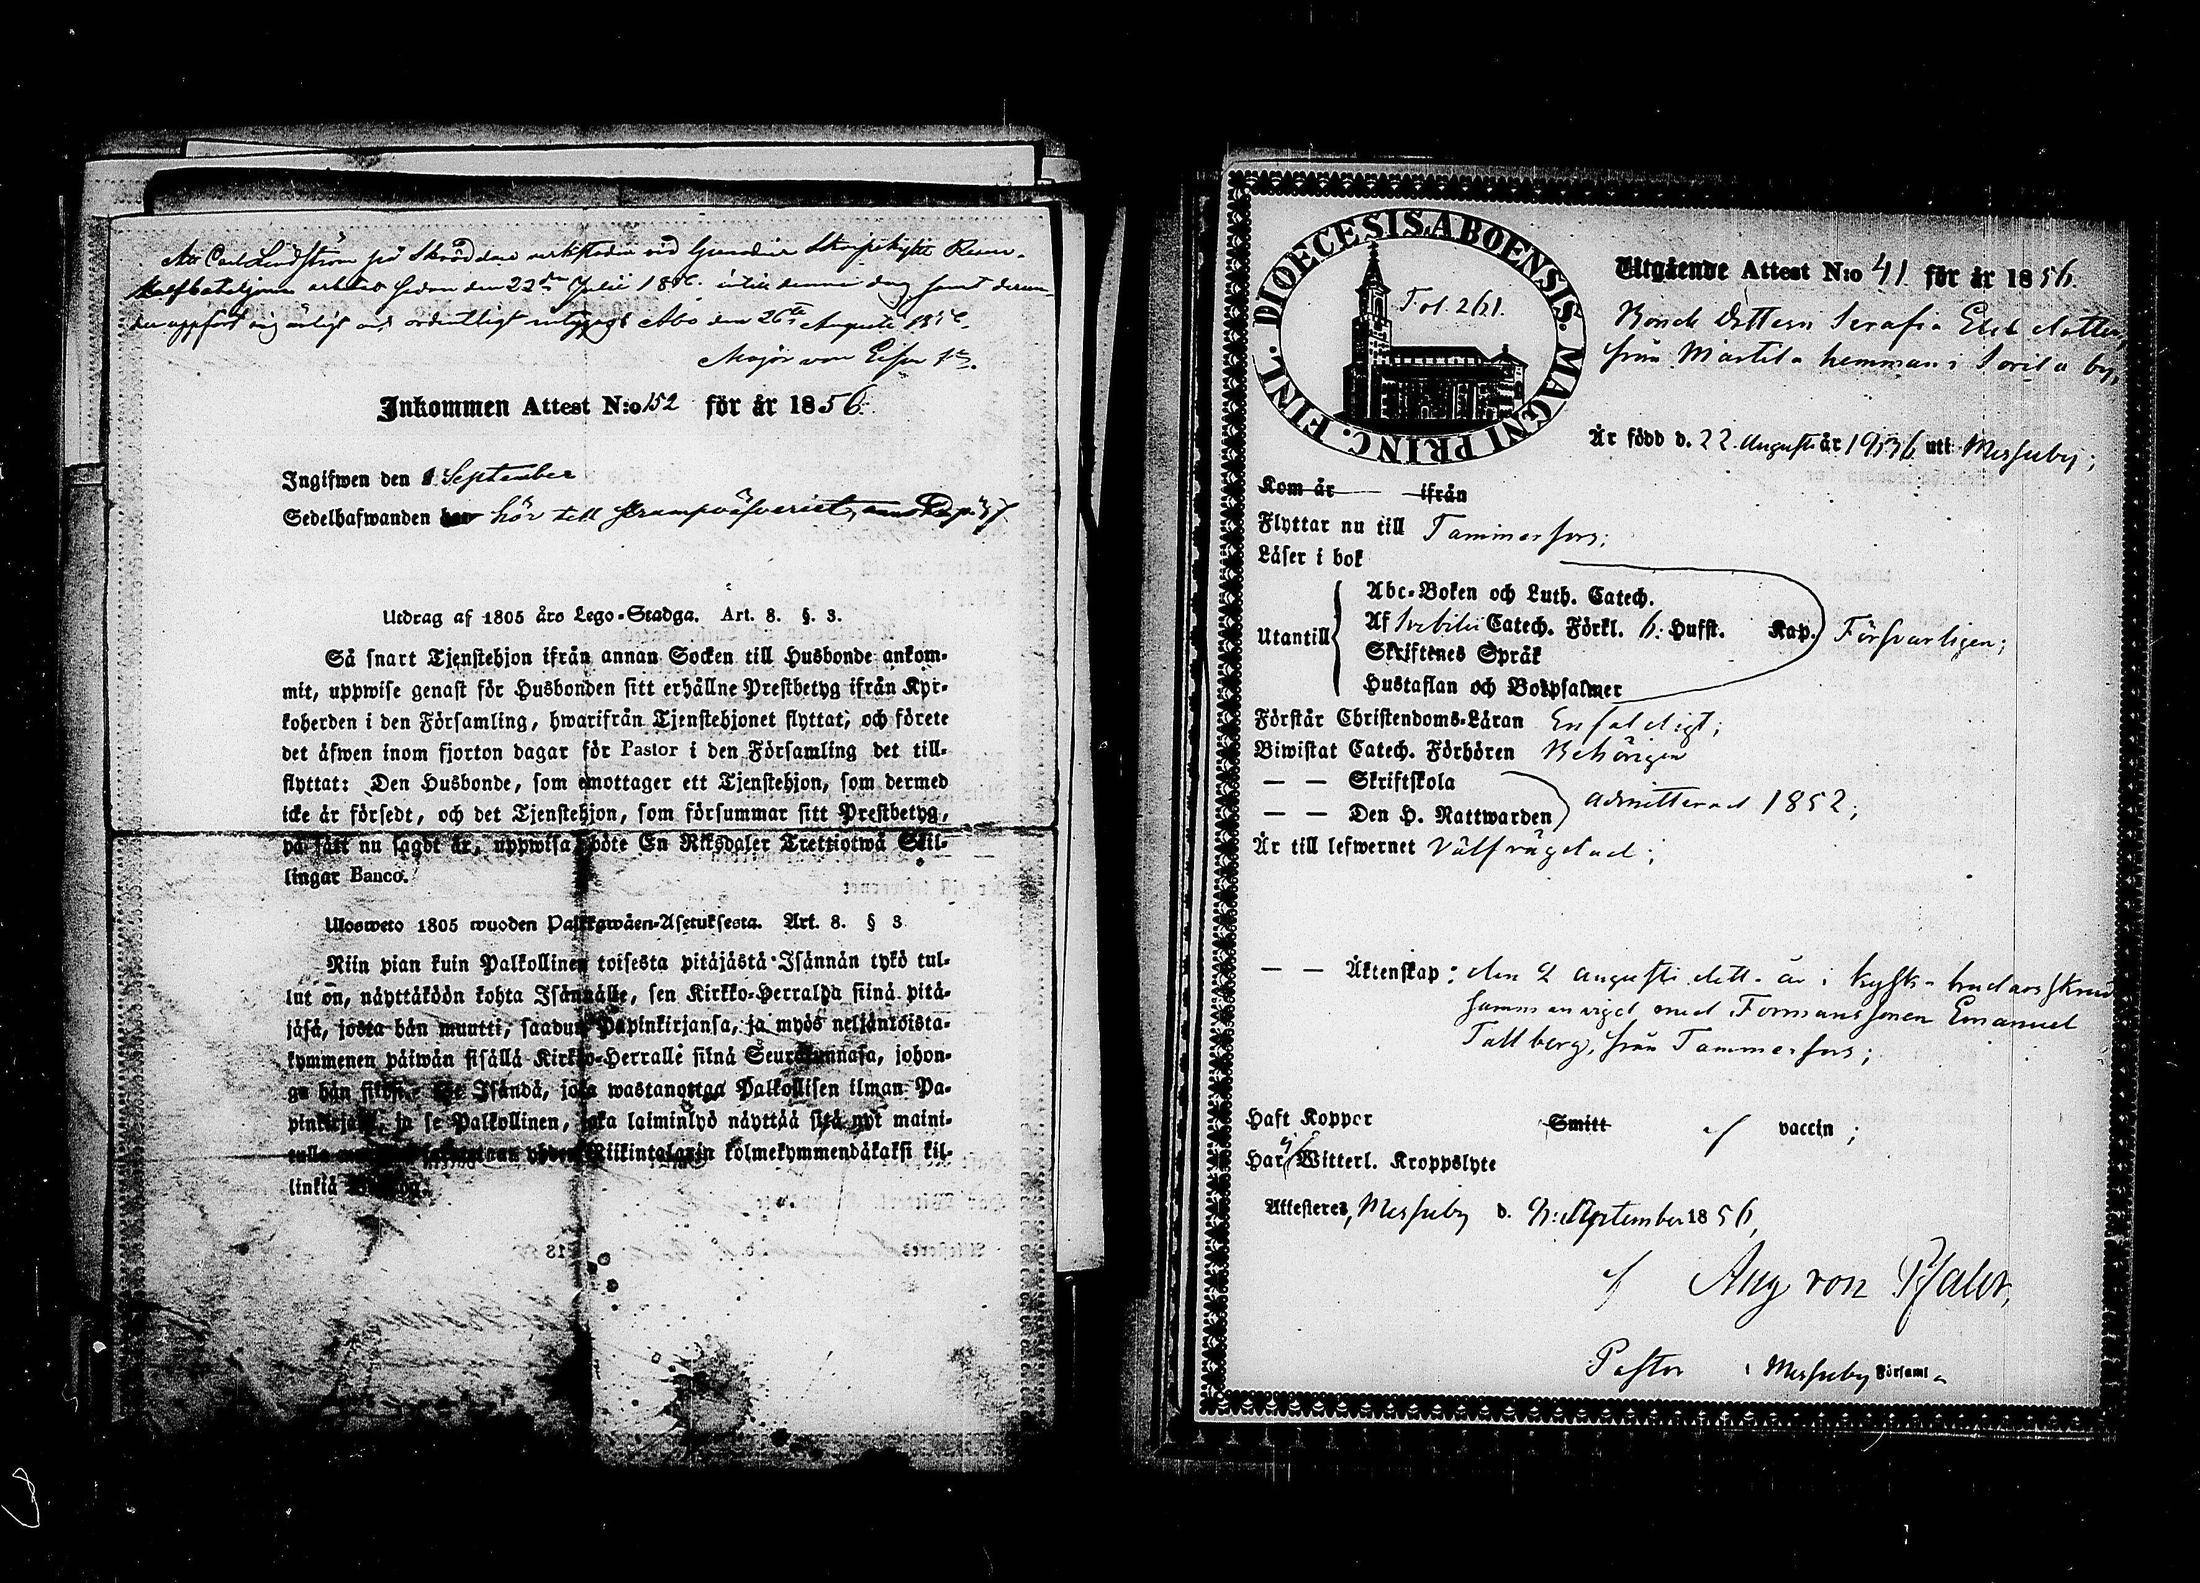 Att Carl Lindström på Skräddare verkstaden vid Grenadier Skarpskytte Reserv-
Halfbataljonen arbetat sedan den 22dra Julii 1856. intill denna dag samt derun-
der uppfört sig ärligt och ordentligt intygas Åbo den 26te Augusti 1856.
Major von
Inkommen Attest N:o 152 för år 1856.
Ingifwen den 1 September
Sedelhafwanden hör till strumpväfveriet
Utdrag af 1805 års Lego-Stadga. Art. 8. §. 3.
Så snart Tjenstehjon ifrån annan Socken till Husbonde ankom-
mit, uppwise genast för Husbonden sitt erhållne Prestbetyg ifrån Kyr-
koherden i den Församling, hwarifrån Tjenstehjonet flyttat, och förete
det äfwen inom fjorton dagar för Pastor i den Församling det till-
flyttat: Den Husbonde, som emottager ett Tjenstehjon, som dermed
icke är försedt, och det Tjenstehjon, som försummar sitt Prestbetyg,
på sätt nu sagdt är, uppwisa, böte En Riksdaler Trettiotwå Skil-
lingar Banco.
Ulosweto 1805 wuoden Palkkawäen-Asetuksesta. Art. 8. § 3
Niin pian kuin Palkollinen toisesta pitäjästä Isännän tykö tul-
lut on, näyttäköön kohta Isännälle, sen Kirkko-Herralda siinä pitä-
jäsä, josta hän muutti, saadun Papinkirjansa, ja myös neljäntoista-
kymmenen päiwän sisällä Kirkko-Herralle siinä Seurakunnasa, johon-
ga hän siirsi. Se Isändä, joka wastanottaa Palkollisen ilman Pa-
pinkirjata, ja se Palkollinen, joka laiminlyö näyttää sitä nyt maini-
tulla Riikintalarin kolmekymmendäkaksi kil-
linkiä
DIOECESIS ABOENSIS. MAGNI PRINC. FINL.
Fol. 261.
Utgående Attest N:o 41 för år 1856.
Bonde Dottern Serafia Elisb Mattsd
från Marttila hemman i Sorila by,
Är född d. 22 Augusti år 1836 uti Messuby;
Kom år ifrån
Flyttar nu till Tammerfors;
Läser i bok
Abc-Boken och Luth. Catech.
Utantill Af Svebilii Catech. Förkl. 6. Hufst. Kap. Försvarligen;
Skriftenes Språk
Hustaflan och Botpsalmer
Förstår Christendoms-Läran Enfaldigt;
Biwistat Catech. Förhören Behörigen
— — Skriftskola
— — Den H. Nattwarden admitterad 1852;
Är till lefwernet Välfrägdad;
— — Äktenskap: den 2 augusti dett. år i kysk brudarskrud
sammanvigd med Formanssonen Emanuel
Tallberg, från Tammerfors;
Haft Koppor Smitt vaccin;
Har ej Witterl. Kroppslyte
Attesteres, Messuby d. 2: September 1856,
Aug von Pfaler,
Pastor i Messuby Församl